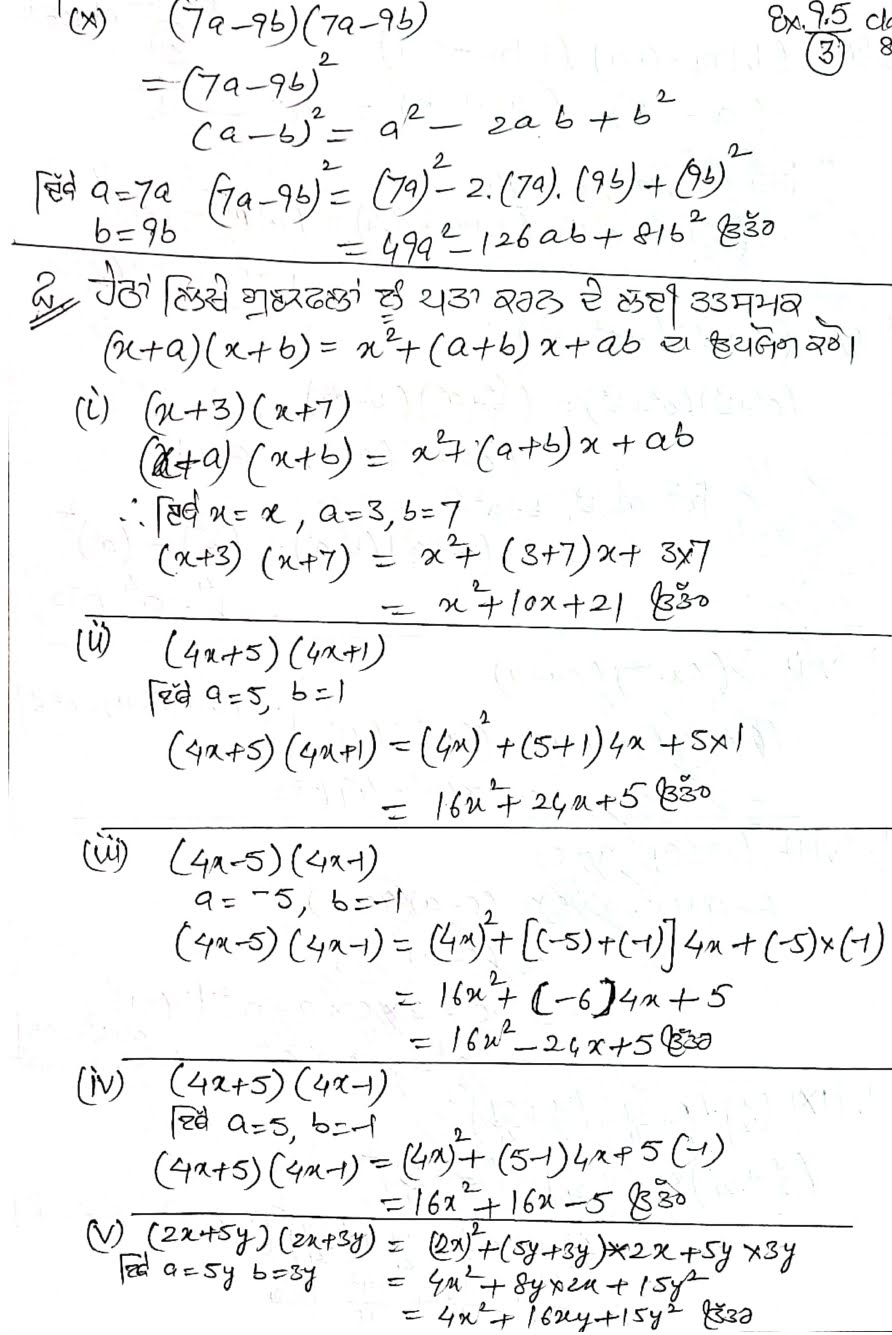 (x) (7a-9b)(7a-9b) Ex. 9.5 cla
= (7a-9b)² (3) 8
(a-b)² = a² - 2ab + b²
ਇੱਥੇ a=7a (7a-9b)² = (7a)² - 2.(7a).(9b) + (9b)²
b=9b = 49a² - 126ab + 81b² ਉੱਤਰ
2. ਹੇਠਾਂ ਲਿਖੇ ਗੁਣਨਫਲਾਂ ਨੂੰ ਪਤਾ ਕਰਨ ਦੇ ਲਈ ਤਤਸਮਕ
(x+a)(x+b) = x²+(a+b)x+ab ਦਾ ਉਪਯੋਗ ਕਰੋ।
(i) (x+3)(x+7)
(x+a)(x+b) = x²+(a+b)x+ab
∴ ਇੱਥੇ x=x, a=3, b=7
(x+3)(x+7) = x²+(3+7)x+ 3×7
= x²+10x+21 ਉੱਤਰ
(ii) (4x+5)(4x+1)
ਇੱਥੇ a=5, b=1
(4x+5)(4x+1) = (4x)²+(5+1)4x+5×1
= 16x²+24x+5 ਉੱਤਰ
(iii) (4x-5)(4x-1)
a=-5, b=-1
(4x-5)(4x-1) = (4x)²+[(-5)+(-1)]4x+(-5)×(-1)
= 16x²+(-6)4x+5
= 16x²-24x+5 ਉੱਤਰ
(iv) (4x+5)(4x-1)
ਇੱਥੇ a=5, b=-1
(4x+5)(4x-1) = (4x)²+(5-1)4x+5(-1)
= 16x²+16x-5 ਉੱਤਰ
(v) (2x+5y)(2x+3y) = (2x)²+(5y+3y)×2x+5y×3y
ਇੱਥੇ a=5y b=3y = 4x²+8y×2x+15y²
= 4x²+16xy+15y² ਉੱਤਰ